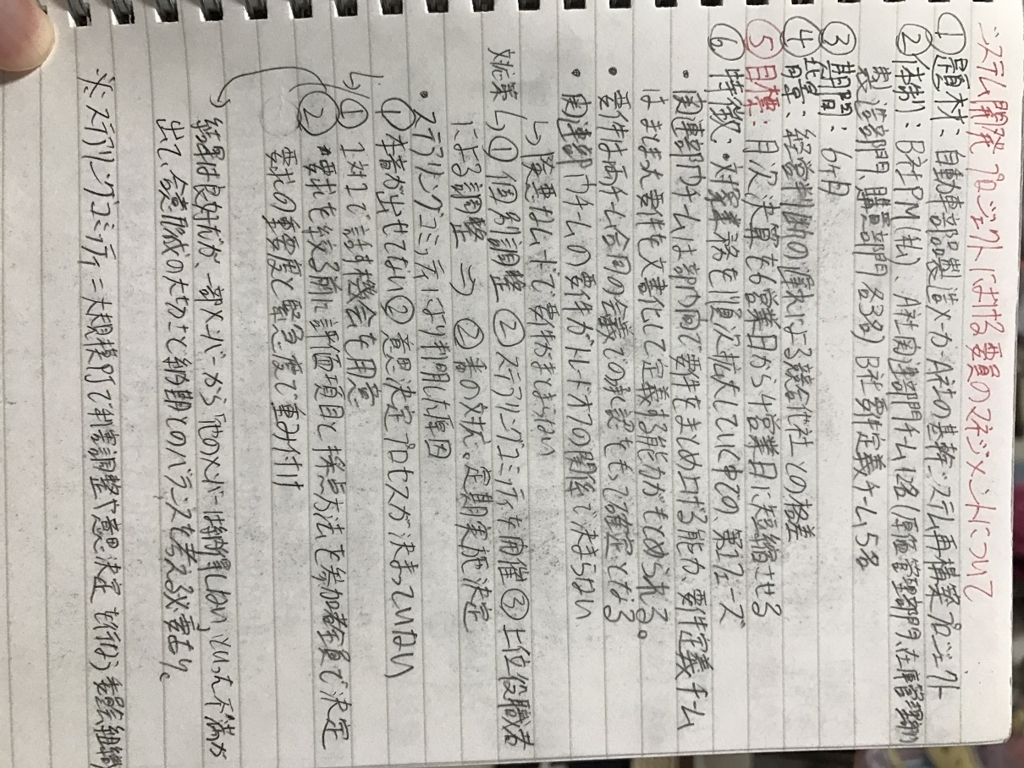 システム開発プロジェクトにおける要員のマネジメントについて
①題材：自動車部品製造メーカA社の基幹システム再構築プロジェクト
②体制：B社PM(私)、A社関連部門チーム12名(原価管理部門、在庫管理部門
製造部門、購買部門 各3名) B社要件定義チーム5名
③期間：6ヶ月
④背景：経営判断の遅れによる競合他社との格差
⑤目標：月次決算を6営業日から4営業日に短縮させる
⑥特徴：・対象業務を順次拡大していく中での第1フェーズ
・関連部門チームは部門間で要件をまとめ上げる能力、要件定義チーム
はまとまった要件を文書化して定義する能力がもとめられる。
・要件は両チーム合同の会議での承認をもって確定となる
・関連部門チームの要件がトレードオフの関係で決まらない
↳険悪なムードで要件がまとまらない
対策↳①個別調整 ②ステアリングコミッティを開催 ③上位役職者
による調整 ⇒ ②案の対状。定期実施決定
・ステアリングコミッティにより判明した原因
①本音が出せてない ②意思決定プロセスが決まっていない
↳① 1対1で話す機会を用意
② 要件を絞る前に評価項目と採点方法を参加者全員で決定
要件の重要度と緊急度で重み付け
結果は良好だが一部メンバーから「他のメンバーは納得しない」といった不満が
出て合意形成の大切さと納期とのバランスを考える必要あり。
※ステアリングコミッティ＝大規模PJで利害調整や意思決定を行なう委員会組織